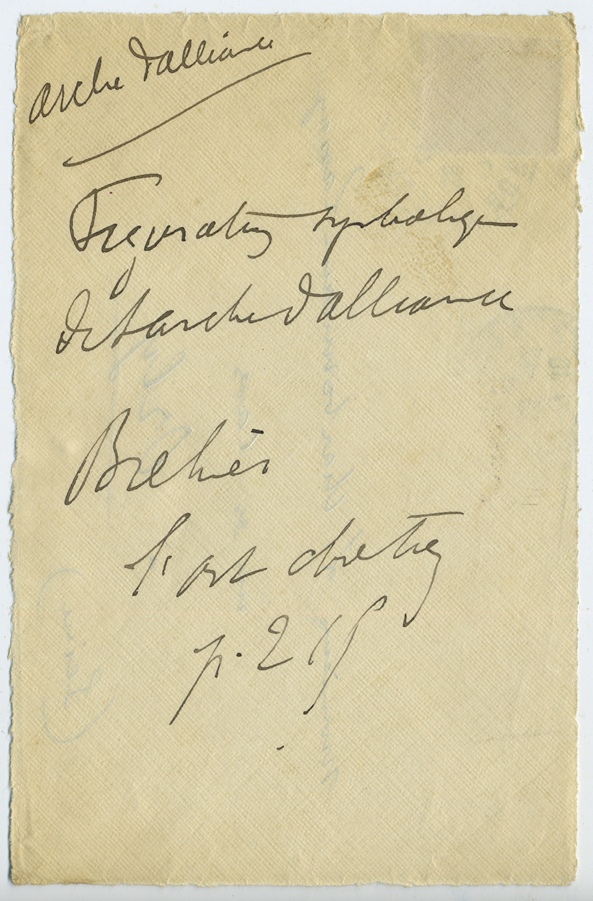 arche d'alliance
Figuration symbolique
de l'arche d'alliance
Brehier
l'art chretien
p. 218